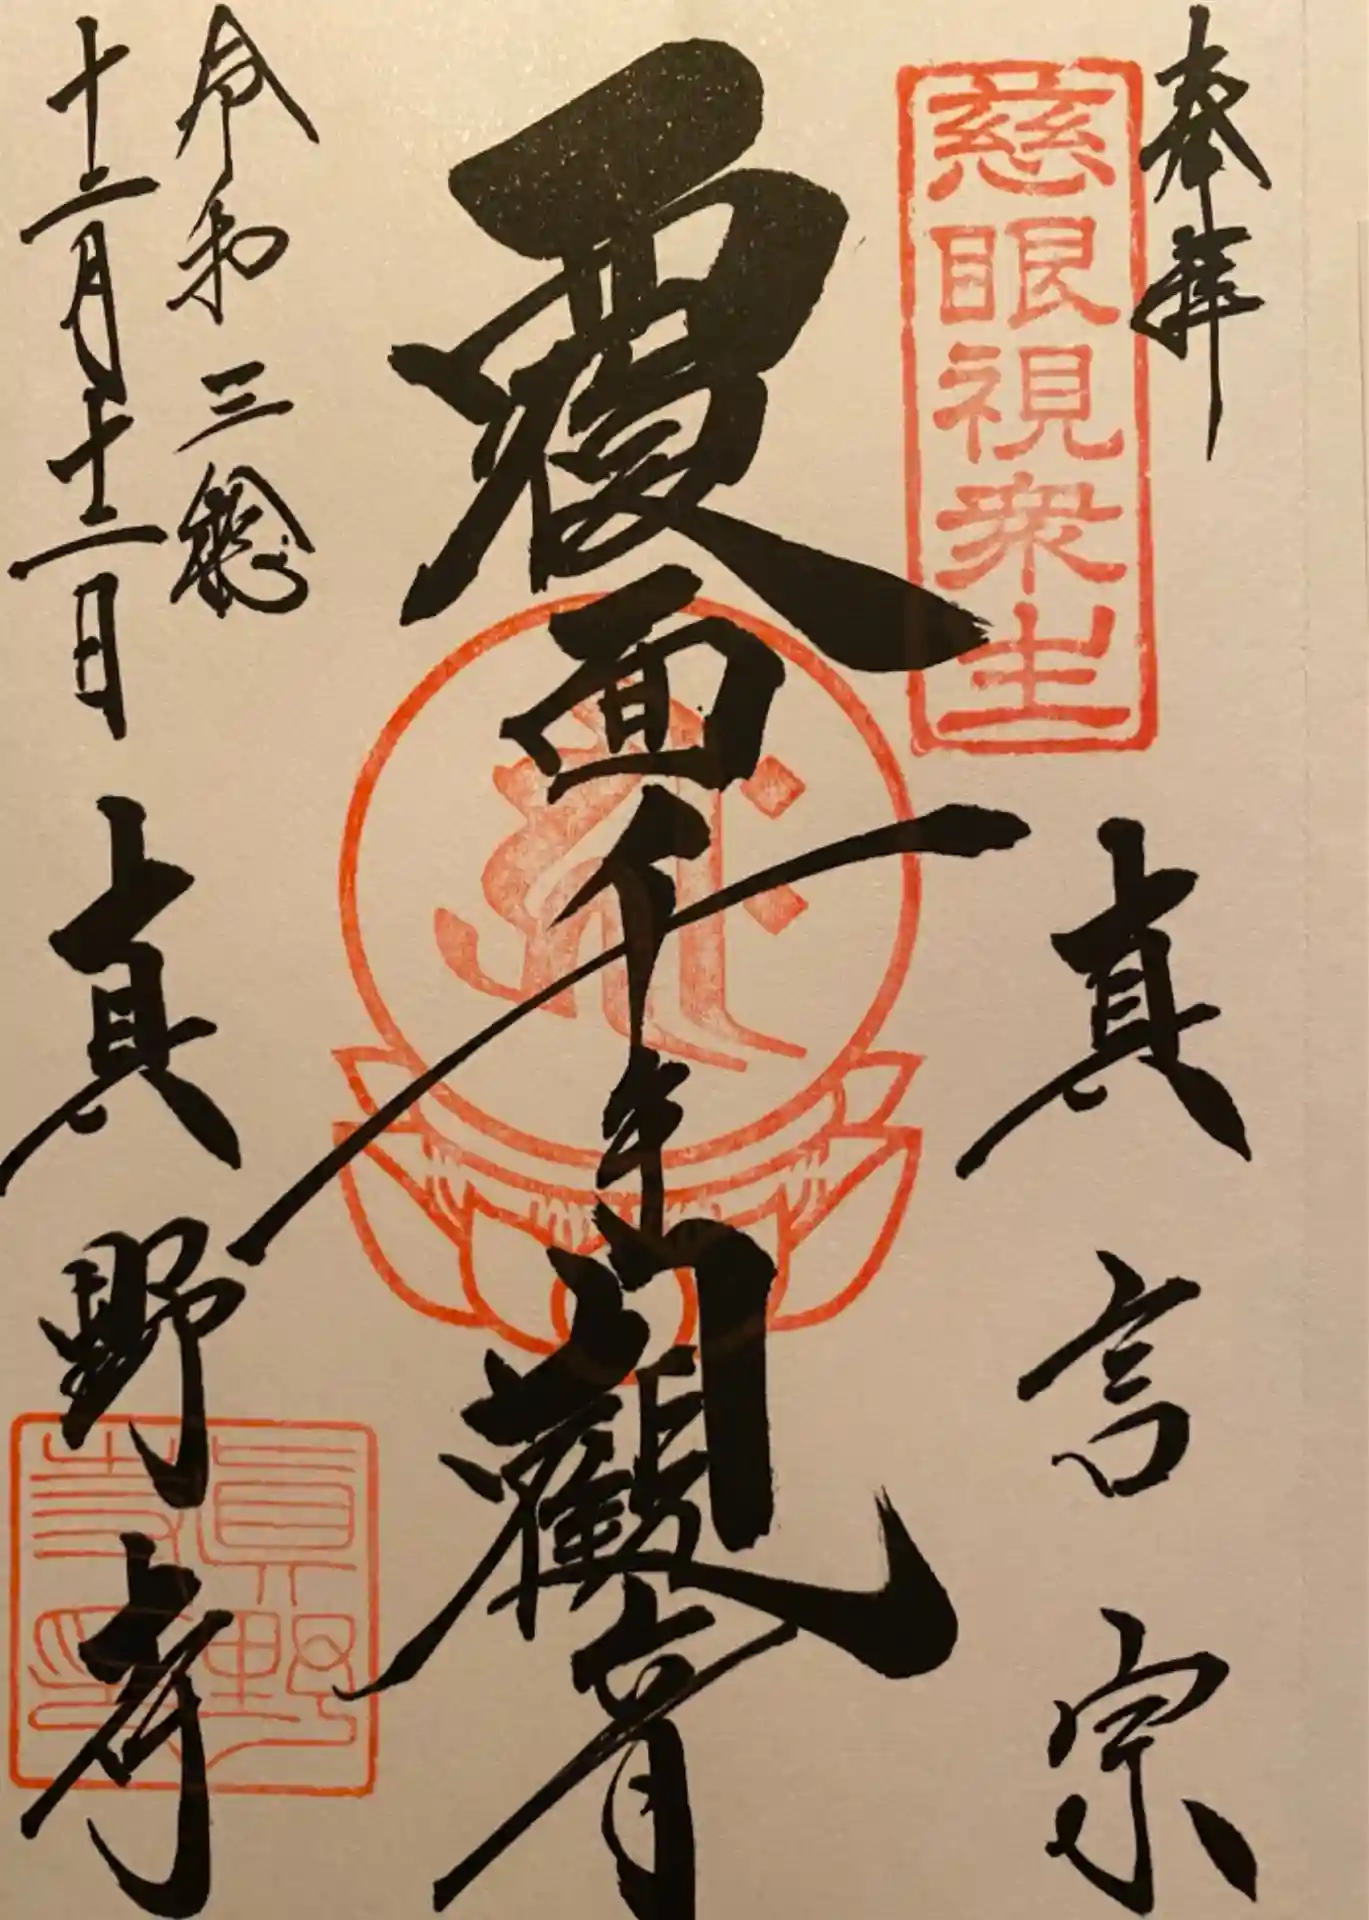 奉拝
慈眼視衆生
真言宗
覆面千手観音
令和三年
十二月十二日
真野寺
真野寺印